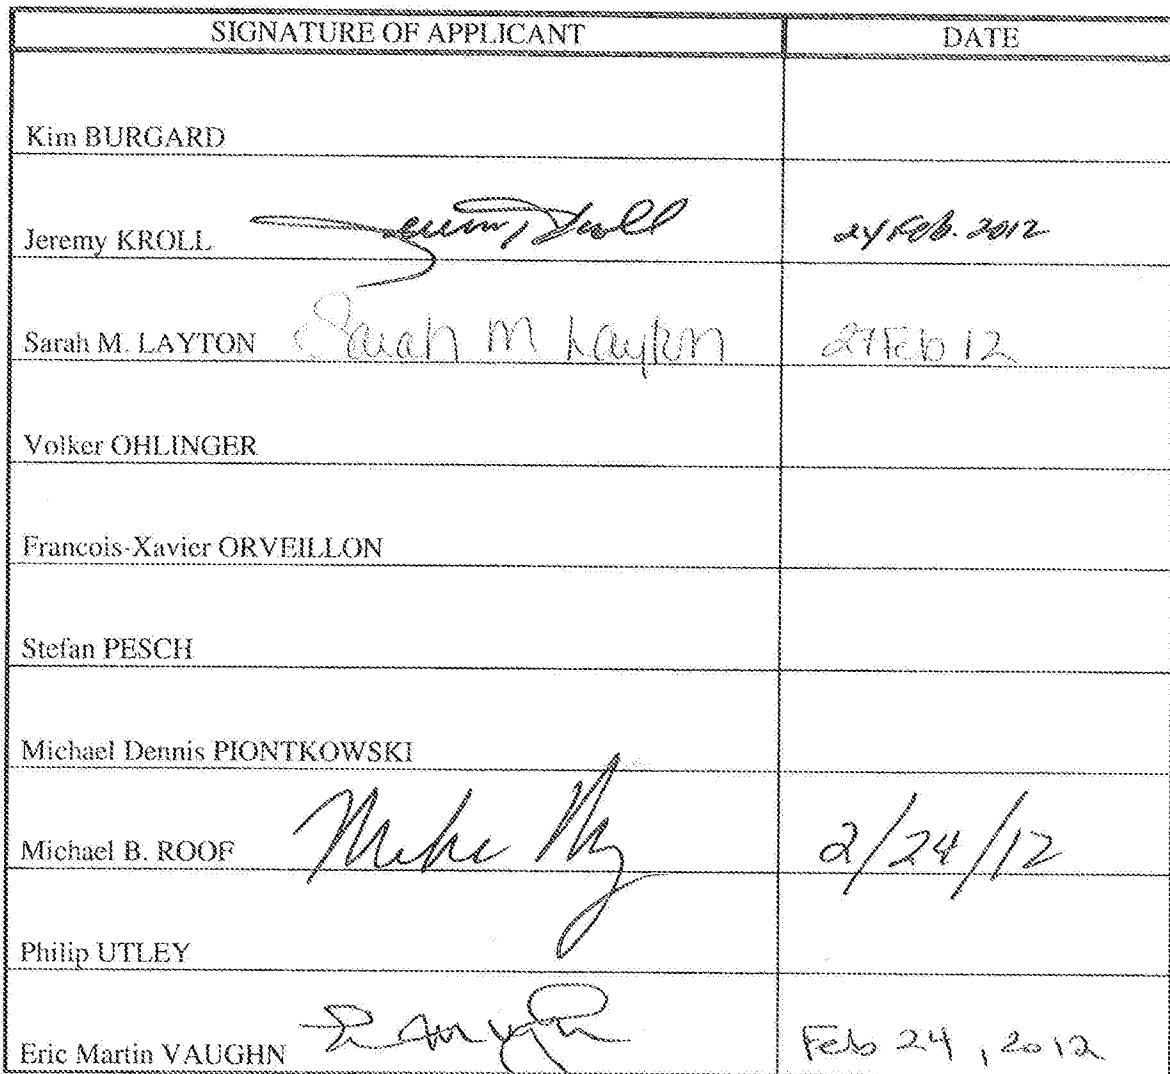 SIGNATURE OF APPLICANT DATE
Kim BURGARD
Jeremy KROLL Jeremy Kroll 24 Feb. 2012
Sarah M. LAYTON Sarah M Layton 27 Feb 12
Volker OHLINGER
Francois-Xavier ORVEILLON
Stefan PESCH
Michael Dennis PIONTKOWSKI
Michael B. ROOF Mike 2/24/12
Philip UTLEY
Eric Martin VAUGHN Feb 24, 2012